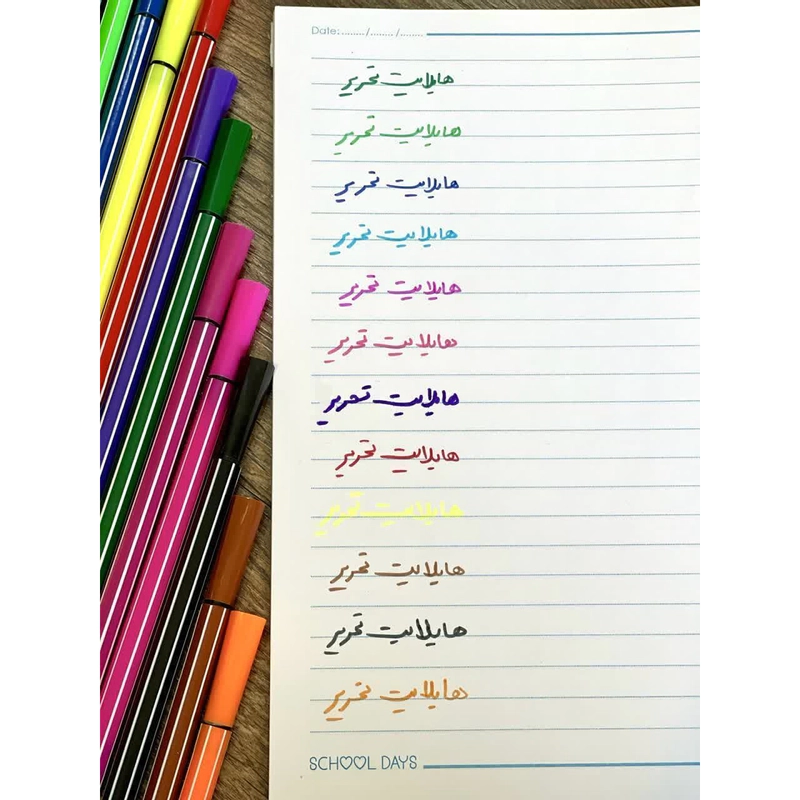 Date:......../......../........
هایلایت تحریر
هایلایت تحریر
هایلایت تحریر
هایلایت تحریر
هایلایت تحریر
هایلایت تحریر
هایلایت تحریر
هایلایت تحریر
هایلایت تحریر
هایلایت تحریر
هایلایت تحریر
هایلایت تحریر
SCHOOL DAYS